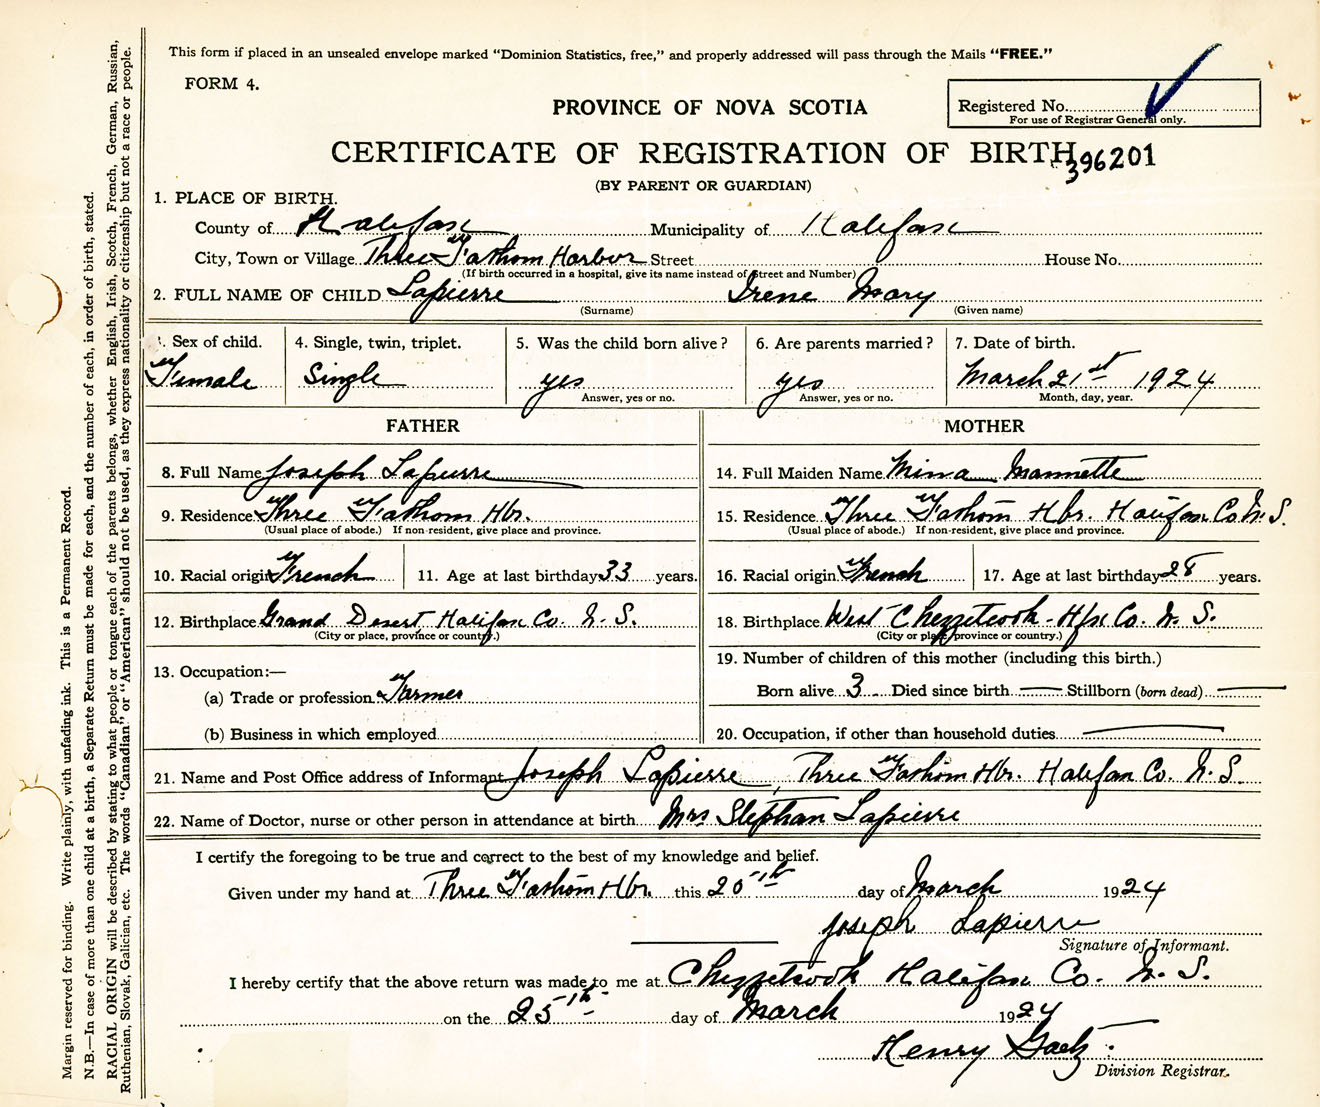 This form if placed in an unsealed envelope marked "Dominion Statistics, free," and properly addressed will pass through the Mails "FREE."
FORM 4.
PROVINCE OF NOVA SCOTIA
Registered No.
For use of Registrar General only.
CERTIFICATE OF REGISTRATION OF BIRTH
396201
(BY PARENT OR GUARDIAN)
1. PLACE OF BIRTH.
County of Halifax Municipality of Halifax
City, Town or Village Three Fathom Harbor Street House No.
(If birth occurred in a hospital, give its name instead of Street and Number)
2. FULL NAME OF CHILD Lapierre Irene Mary
(Surname) (Given name)
3. Sex of child. 4. Single, twin, triplet. 5. Was the child born alive? 6. Are parents married? 7. Date of birth.
Female Single yes yes March 21st 1924
Answer, yes or no. Answer, yes or no. Month, day, year.
FATHER MOTHER
8. Full Name Joseph Lapierre 14. Full Maiden Name Mina Mannette
9. Residence Three Fathom Hbr. 15. Residence Three Fathom Hbr. Halifax Co. N. S.
(Usual place of abode.) If non-resident, give place and province. (Usual place of abode.) If non-resident, give place and province.
10. Racial origin French 11. Age at last birthday 33 years. 16. Racial origin French 17. Age at last birthday 28 years.
12. Birthplace Grand Desert Halifax Co. N. S. 18. Birthplace West Chezzetcook - Hfx Co. N. S.
(City or place, province or country.) (City or place, province or country.)
13. Occupation:— 19. Number of children of this mother (including this birth.)
(a) Trade or profession Farmer Born alive 3 Died since birth — Stillborn (born dead) —
(b) Business in which employed 20. Occupation, if other than household duties —
21. Name and Post Office address of Informant Joseph Lapierre, Three Fathom Hbr. Halifax Co. N. S.
22. Name of Doctor, nurse or other person in attendance at birth Mrs Stephan Lapierre
I certify the foregoing to be true and correct to the best of my knowledge and belief.
Given under my hand at Three Fathom Hbr. this 25th day of March 1924
Joseph Lapierre
Signature of Informant.
I hereby certify that the above return was made to me at Chezzetcook Halifax Co. N. S.
on the 25th day of March 1924
Henry Gaetz.
Division Registrar.
Margin reserved for binding. Write plainly, with unfading ink. This is a Permanent Record.
N.B.—In case of more than one child at a birth, a Separate Return must be made for each, and the number of each, in order of birth, stated.
RACIAL ORIGIN will be described by stating to what people or tongue each of the parents belongs, whether English, Irish, Scotch, French, German, Russian,
Ruthenian, Slovak, Galician, etc. The words "Canadian" or "American" should not be used, as they express nationality or citizenship but not a race or people.